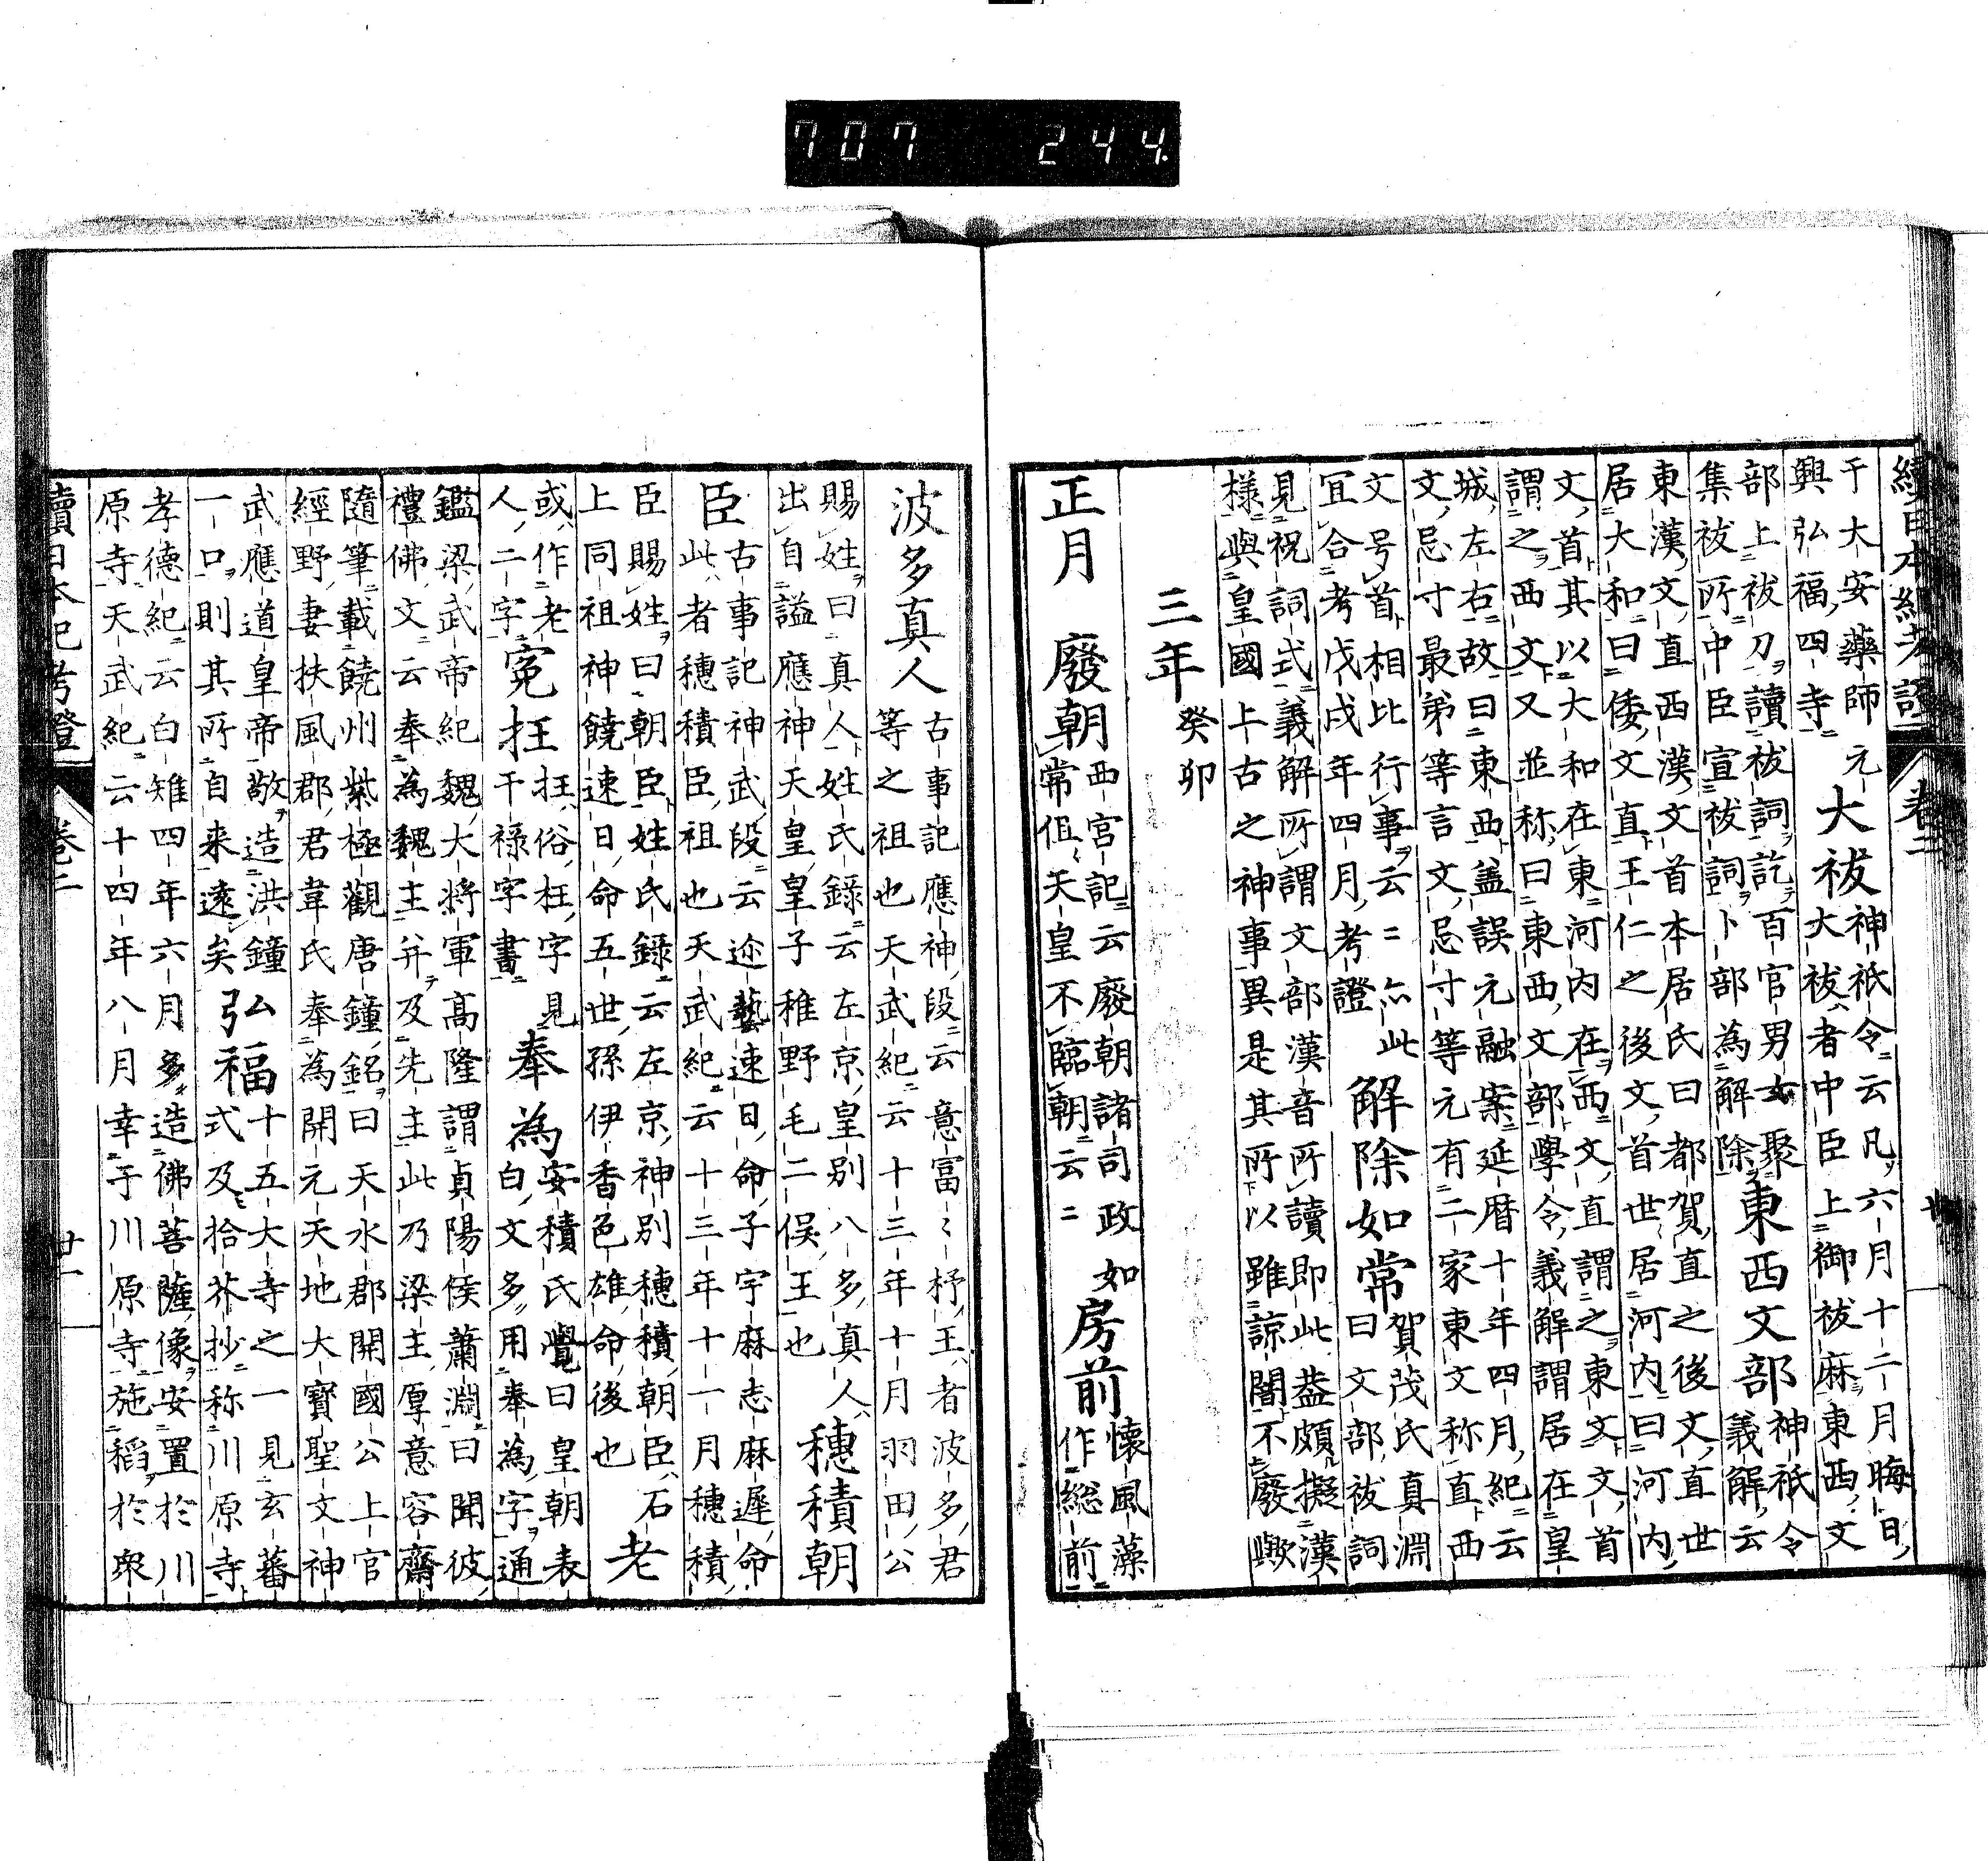 707 244.
續日本紀考證 卷二
于大安藥師元
興弘福四寺
大祓
神祇令云凡六月十二月晦日
大祓者中臣上御祓麻東西文
部上祓刀讀祓詞訖百官男女聚
集祓所中臣宣祓詞卜部為解除
東西文部
神祇令
義解云
東漢文直西漢文首本居氏曰都賀直之後文直世
居大和曰倭文直王仁之後文首世居河内曰河内
文首其以大和在東河内在西文直謂之東文文首
謂之西文又並称曰東西文部學令義解謂居在皇
城左右故曰東西盖誤元融案延暦十年四月紀云
文忌寸最弟等言文忌寸等元有二家東文称直西
文号首相比行事云二亦此
宜合考戊戌年四月考證
解除如常
賀茂氏真淵
曰文部祓詞
見祝詞式義解所謂文部漢音所讀即此盖頗擬漢
様與皇國上古之神事異是其所以雖諒闇不廢歟
三年癸卯
正月 廢朝
西宮記云廢朝諸司政如
常但天皇不臨朝云二
房前
懐風藻
作総前
波多真人
古事記應神段云意富々杼王者波多君
等之祖也天武紀云十三年十月羽田公
賜姓曰真人姓氏録云左京皇別八多真人
出自謚應神天皇皇子稚野毛二俣王也
穗積朝
臣
古事記神武段云迩藝速日命子宇麻志麻遲命
此者穗積臣祖也天武紀云十三年十一月穗積
臣賜姓曰朝臣姓氏録云左京神別穗積朝臣石
上同祖神饒速日命五世孫伊香色雄命後也
老
或作老
人二字
寃抂
抂俗枉字見
干禄字書
奉為
安積氏覺曰皇朝表
白文多用奉為字通
鑑梁武帝紀魏大将軍高隆謂貞陽侯蕭淵曰聞彼
禮佛文云奉為魏主并及先主此乃梁主厚意容齋
隨筆載饒州紫極觀唐鐘銘曰天水郡開國公上官
經野妻扶風郡君韋氏奉為開元天地大寳聖文神
武應道皇帝敬造洪鐘
一口則其所自来遠矣
弘福
十五大寺之一見玄蕃
式及拾芥抄称川原寺
孝德紀云白雉四年六月多造佛菩薩像安置於川
原寺天武紀云十四年八月幸于川原寺施稻於衆
續日本紀考證 卷二 廿一